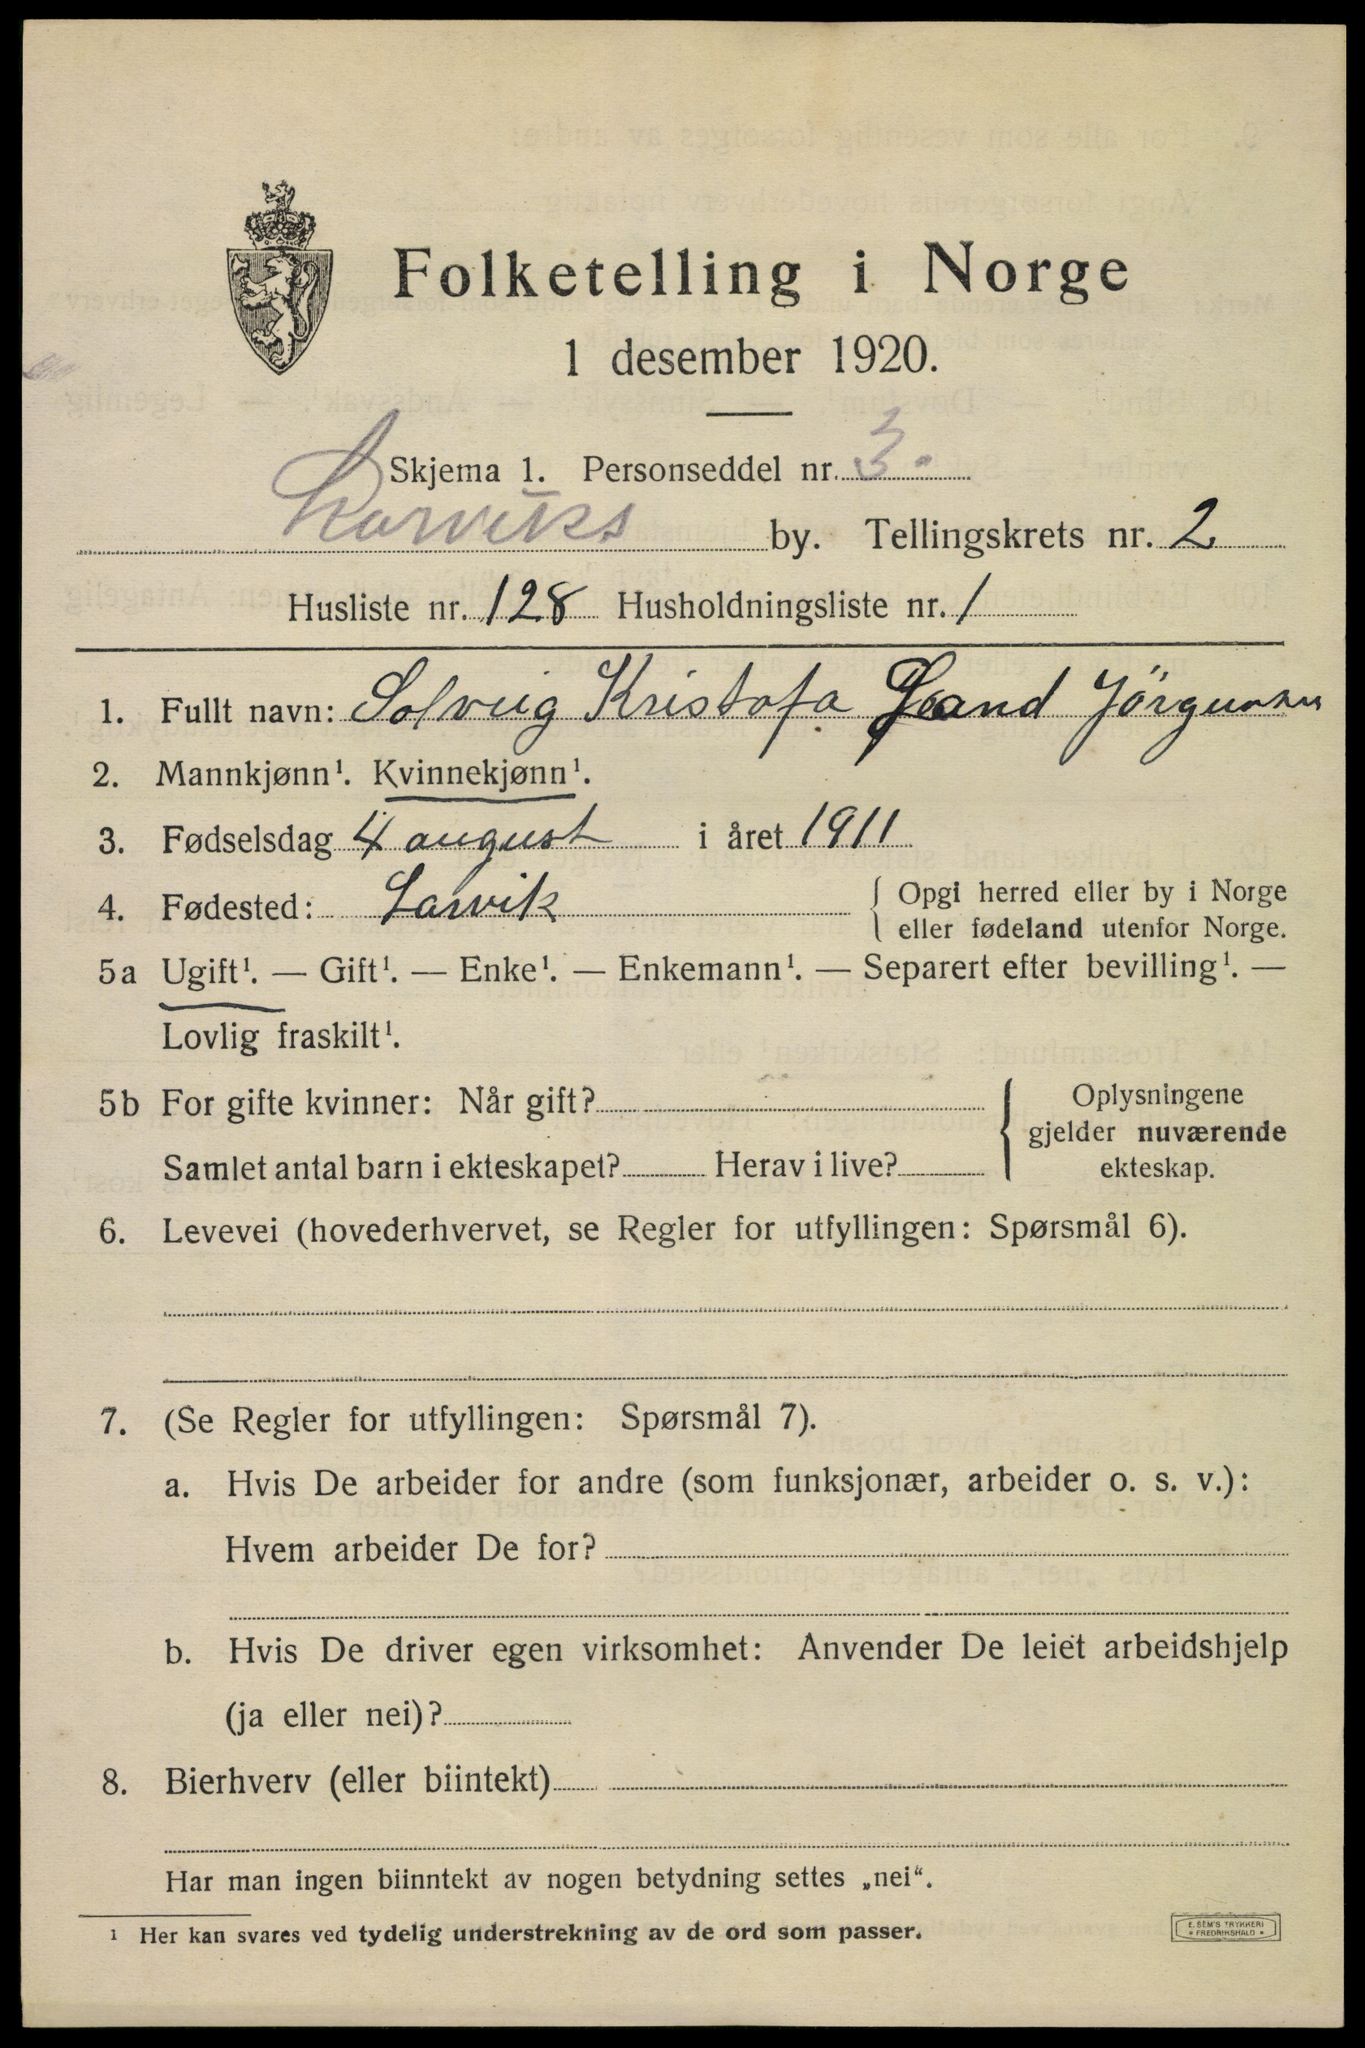 Folketelling i Norge
1 desember 1920.
Skjema 1. Personseddel nr. 3.
Larviks by. Tellingskrets nr. 2
Husliste nr. 128 Husholdningsliste nr. 1
1. Fullt navn: Solveig Kristofa Sand Jörgensen
2. Mannkjønn¹. Kvinnekjønn¹.
3. Fødselsdag 4 august i året 1911
4. Fødested: Larvik { Opgi herred eller by i Norge
eller fødeland utenfor Norge.
5a Ugift¹. — Gift¹. — Enke¹. — Enkemann¹. — Separert efter bevilling¹. —
Lovlig fraskilt¹.
5b For gifte kvinner: Når gift?
Samlet antal barn i ekteskapet? Herav i live?
{ Oplysningene
gjelder nuværende
ekteskap.
6. Levevei (hovederhvervet, se Regler for utfyllingen: Spørsmål 6).
7. (Se Regler for utfyllingen: Spørsmål 7).
a. Hvis De arbeider for andre (som funksjonær, arbeider o. s. v.):
Hvem arbeider De for?
b. Hvis De driver egen virksomhet: Anvender De leiet arbeidshjelp
(ja eller nei)?
8. Bierhverv (eller biintekt)
Har man ingen biinntekt av nogen betydning settes „nei“.
¹ Her kan svares ved tydelig understrekning av de ord som passer.
E. SEM'S TRYKKERI
• FREDRIKSHALD •